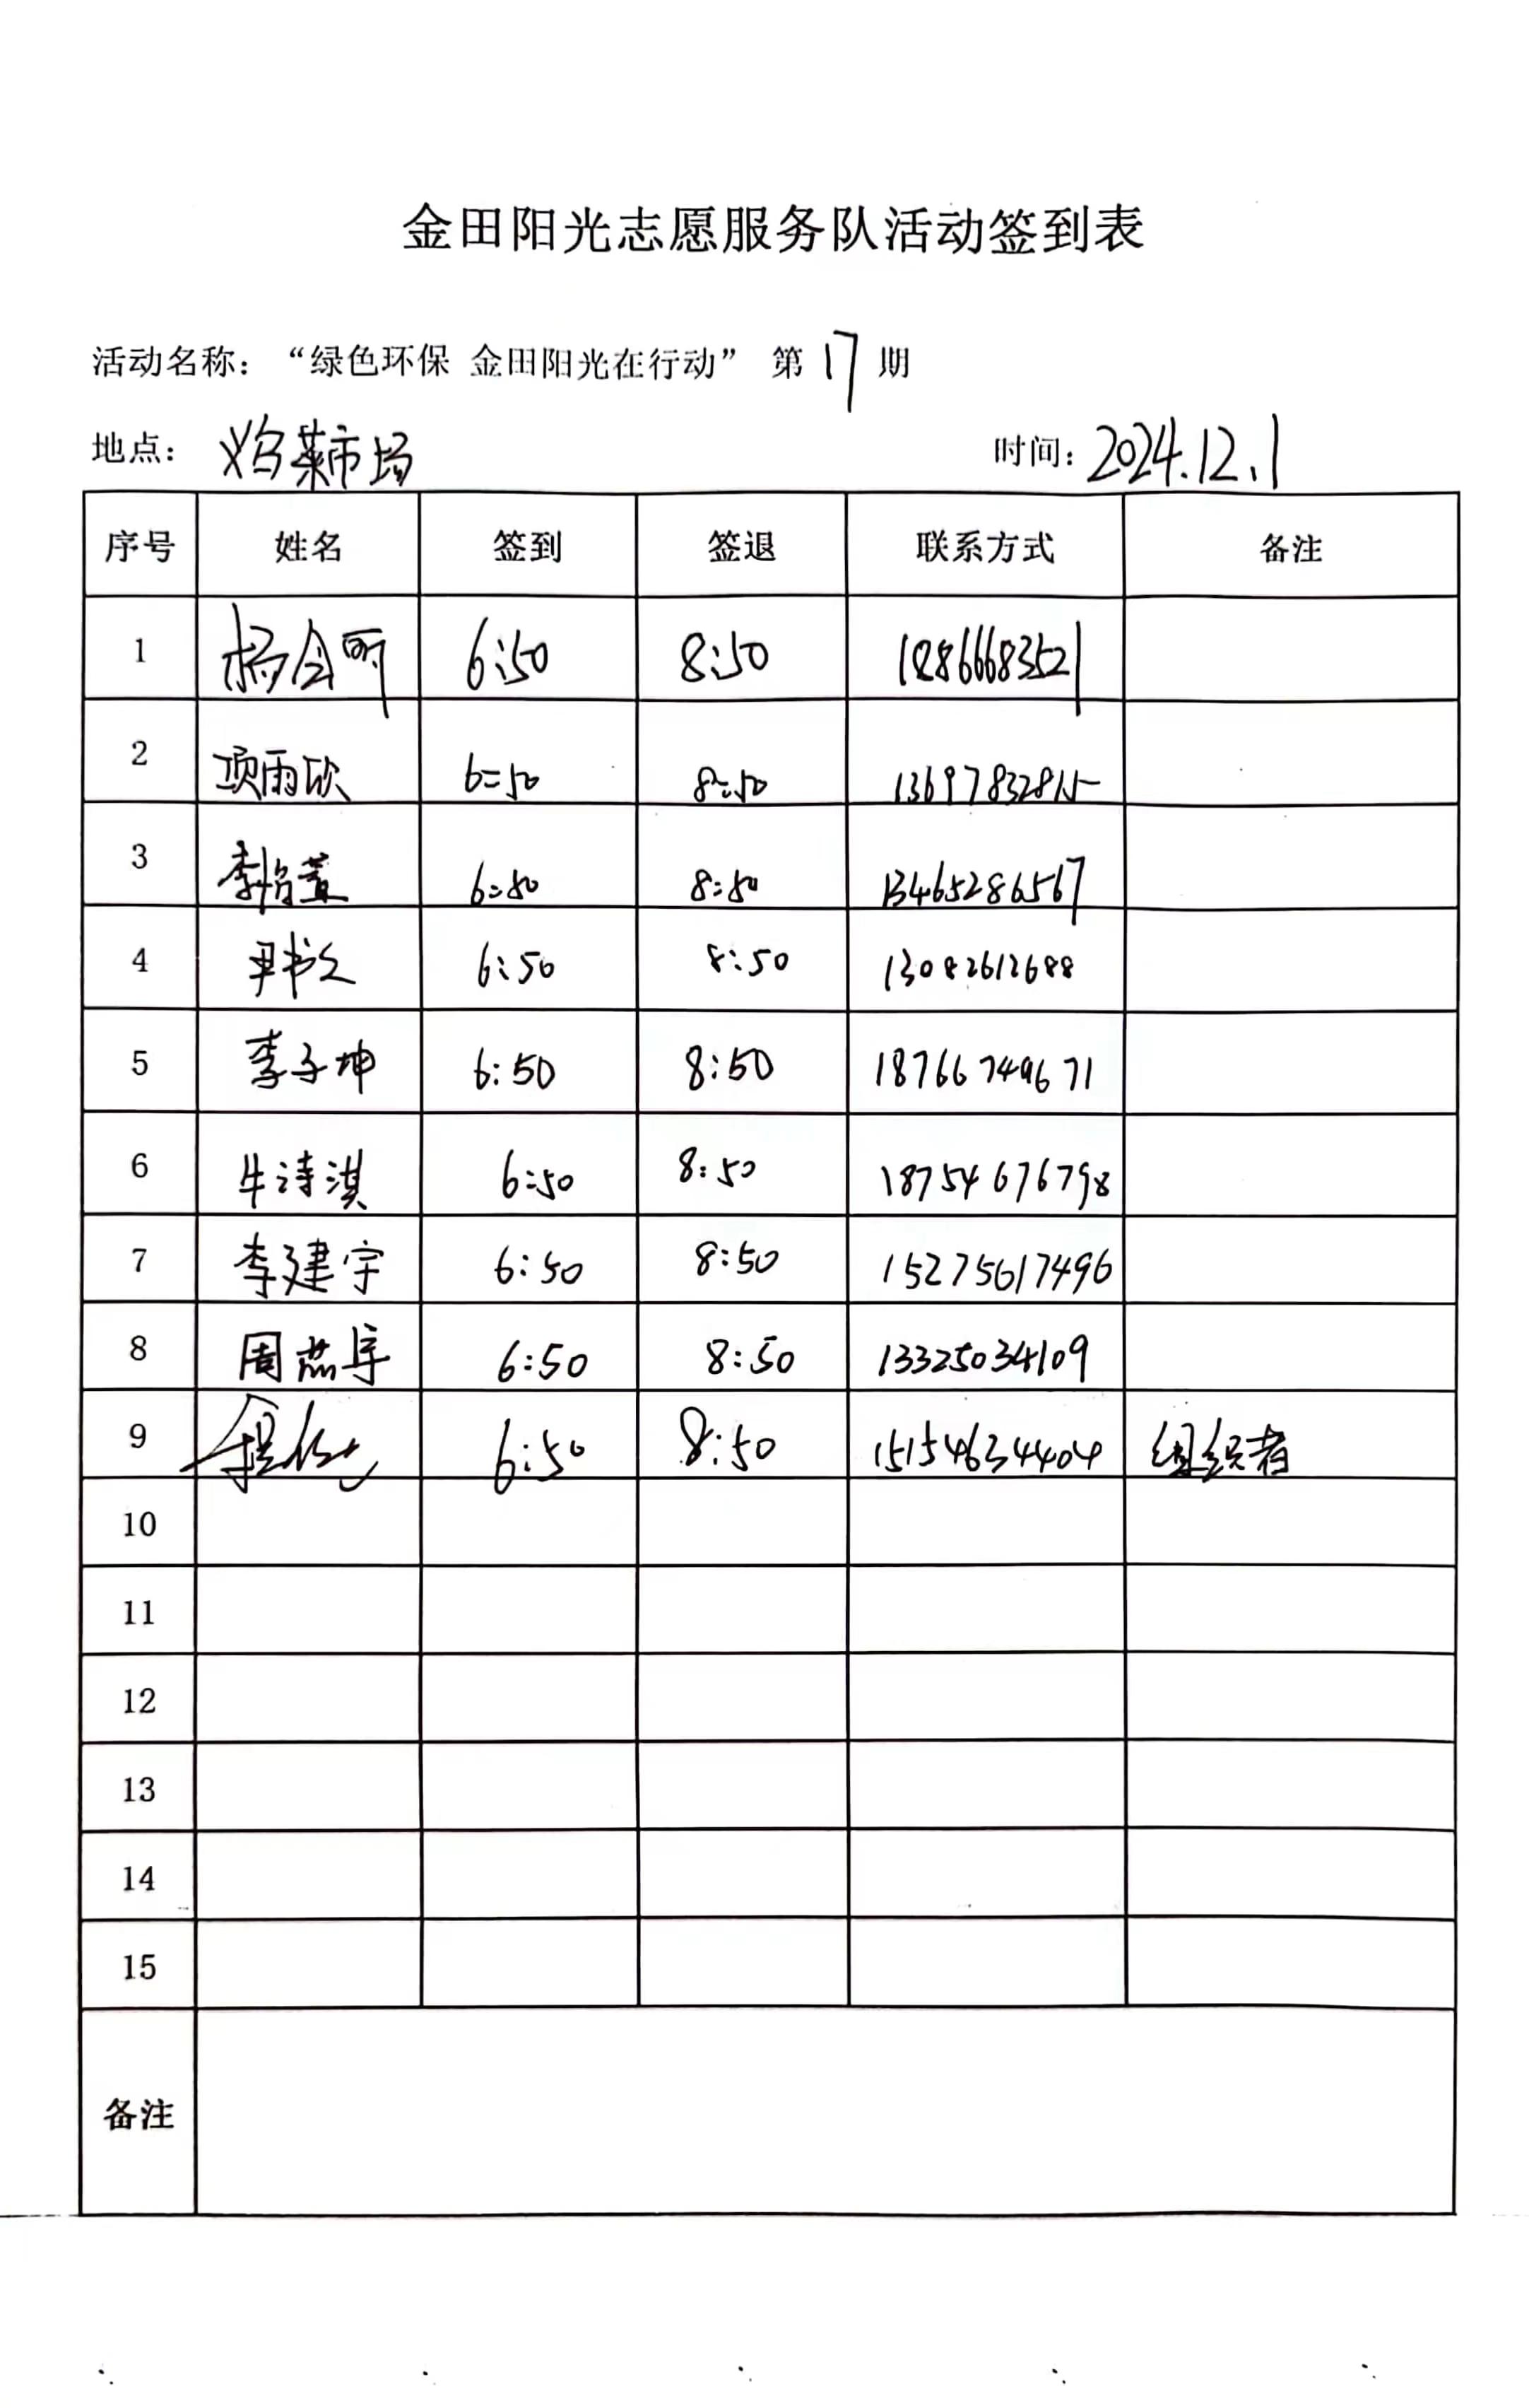 金田阳光志愿服务队活动签到表
活动名称：“绿色环保 金田阳光在行动” 第 17 期
地点： 义乌菜市场 时间：2024.12.1
序号 姓名 签到 签退 联系方式 备注
1 杨会丽 6:50 8:50 18866683521
2 项雨欣 6:50 8:50 13697832815
3 李 6:50 8:50 13465286567
4 尹书文 6:50 8:50 13082612688
5 李子坤 6:50 8:50 18766749671
6 牛诗淇 6:50 8:50 18754676798
7 李建宇 6:50 8:50 15275617496
8 周燕宇 6:50 8:50 13325034109
9 6:50 8:50 15154634404 组织者
10
11
12
13
14
15
备注